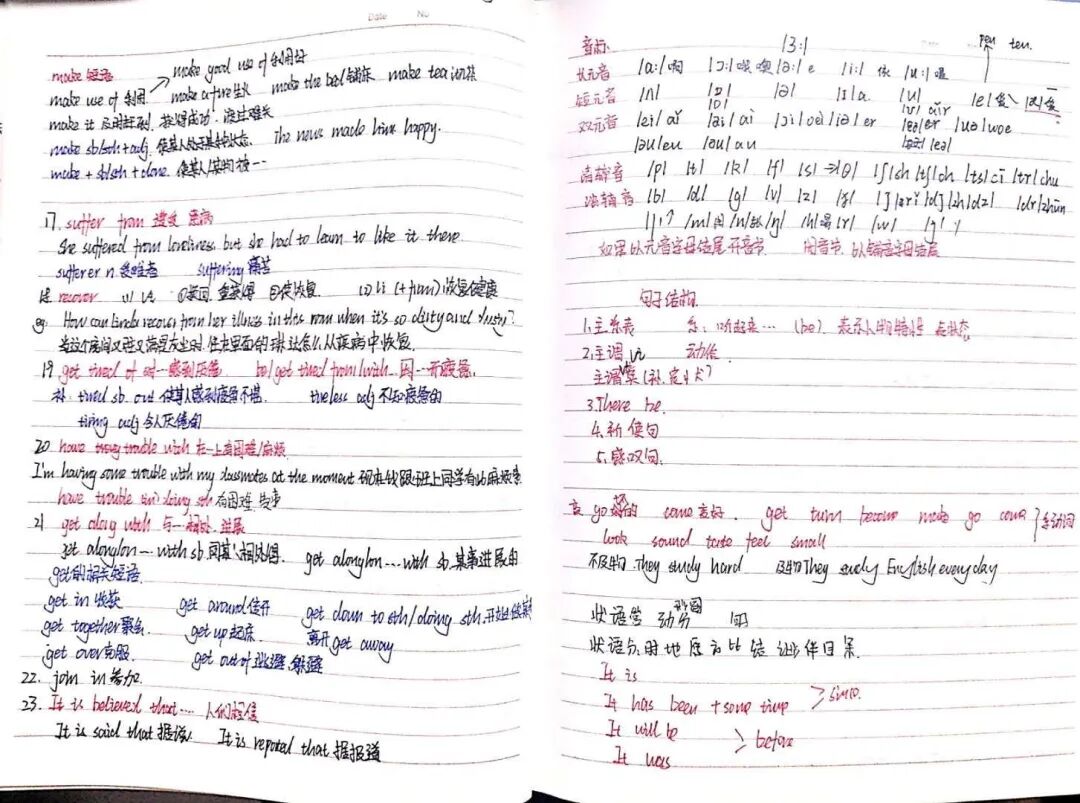 Date No
make 短语
make good use of 利用好
make use of 利用 make a fire生火 make the bed铺床 make tea沏茶
make it 及时赶到, 获得成功, 渡过难关
make sb/sth+adj. 使某人处于某种状态. The news made him happy.
make + sb/sth + done. 使某人/某物被…
17. suffer from 遭受 患病
She suffered from loneliness, but she had to learn to like it there.
sufferer n 受难者 suffering 痛苦
18 recover (1) vt ①买回 重获得 ②使恢复 (2) vi (+from) 恢复健康
eg. How can Linda recover from her illness in this room when it's so dirty and dusty?
当这个房间又脏又满是灰尘时, 住在里面的琳达怎么从疾病中恢复.
19 get tired of 对…感到厌倦 be/get tired from/with… 因…而疲倦.
补 tired sb. out 使某人感到疲倦不堪 tireless adj 不知疲倦的
tiring adj 令人厌倦的
20 have trouble with 在…上有困难/麻烦
I'm having some trouble with my classmates at the moment 现在我跟班上同学有些麻烦事
have trouble (in) doing sth 有困难
21 get along with 与…相处, 进展
get along/on…with sb. 同某人相处得. get along/on…with sb. 某事进展的
get的相关短语
get in 收获 get around 传开 get down to sth/doing sth. 开始做某事
get together 聚会 get up 起床 离开 get away
get over 克服 get out of 逃避, 躲避
22. join in 参加.
23. It is believed that…. 人们相信
It is said that 据说 It is reported that 据报道
音标 /ɜ:/ pen ten.
长元音 /ɑ:/啊 /ɔ:/ /ə:/ e /i:/ 依 /u:/
短元音 /ʌ/ /ɒ/ /ə/ /ɪ/ /ʊ/ /e/ /æ/
双元音 /ei/ /ai/ ai /ɔi/ /iə/ er /eə/er /uə/woe
/əu/eu /au/au /eə/
清辅音 /p/ /t/ /k/ /f/ /s/→/θ/ /ʃ/sh /tʃ/ch /ts/ci /tr/chu
浊辅音 /b/ /d/ /g/ /v/ /z/ /ʒ/ /dʒ/zh /dz/ /dr/zhun
/l/ /m/ /n/ /ŋ/ /h/喝 /r/ /w/ /j/
如果以元音字母结尾开音节. 闭音节, 以辅音字母结尾
句子结构
1.主系表 系: 听起来… (be) 表示人/物特性 表状态
2.主谓 vi 动作
主谓宾(补, 定, 状)
3.There be.
4.祈使句
5.感叹句.
变 go 坏的 come 变好. get turn become make go come }系动词
look sound taste feel small
不及物. they study hard 及物They study English everyday
状语
状语分, 时 地 原 方 比 结 让 条 伴 目
It is
It has been + some time > since.
It will be
> before
It was